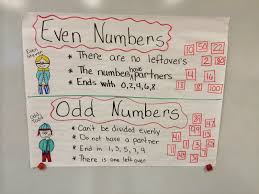 Even Numbers
Even Steven
* There are no leftovers
* The numbers have partners
* Ends with 0,2,4,6,8
10 50 22
100
4 16
Odd Numbers
Odd Todd
* Can't be divided evenly
* Do not have a partner
* End in 1, 3, 5, 7, 9
* There is one left over